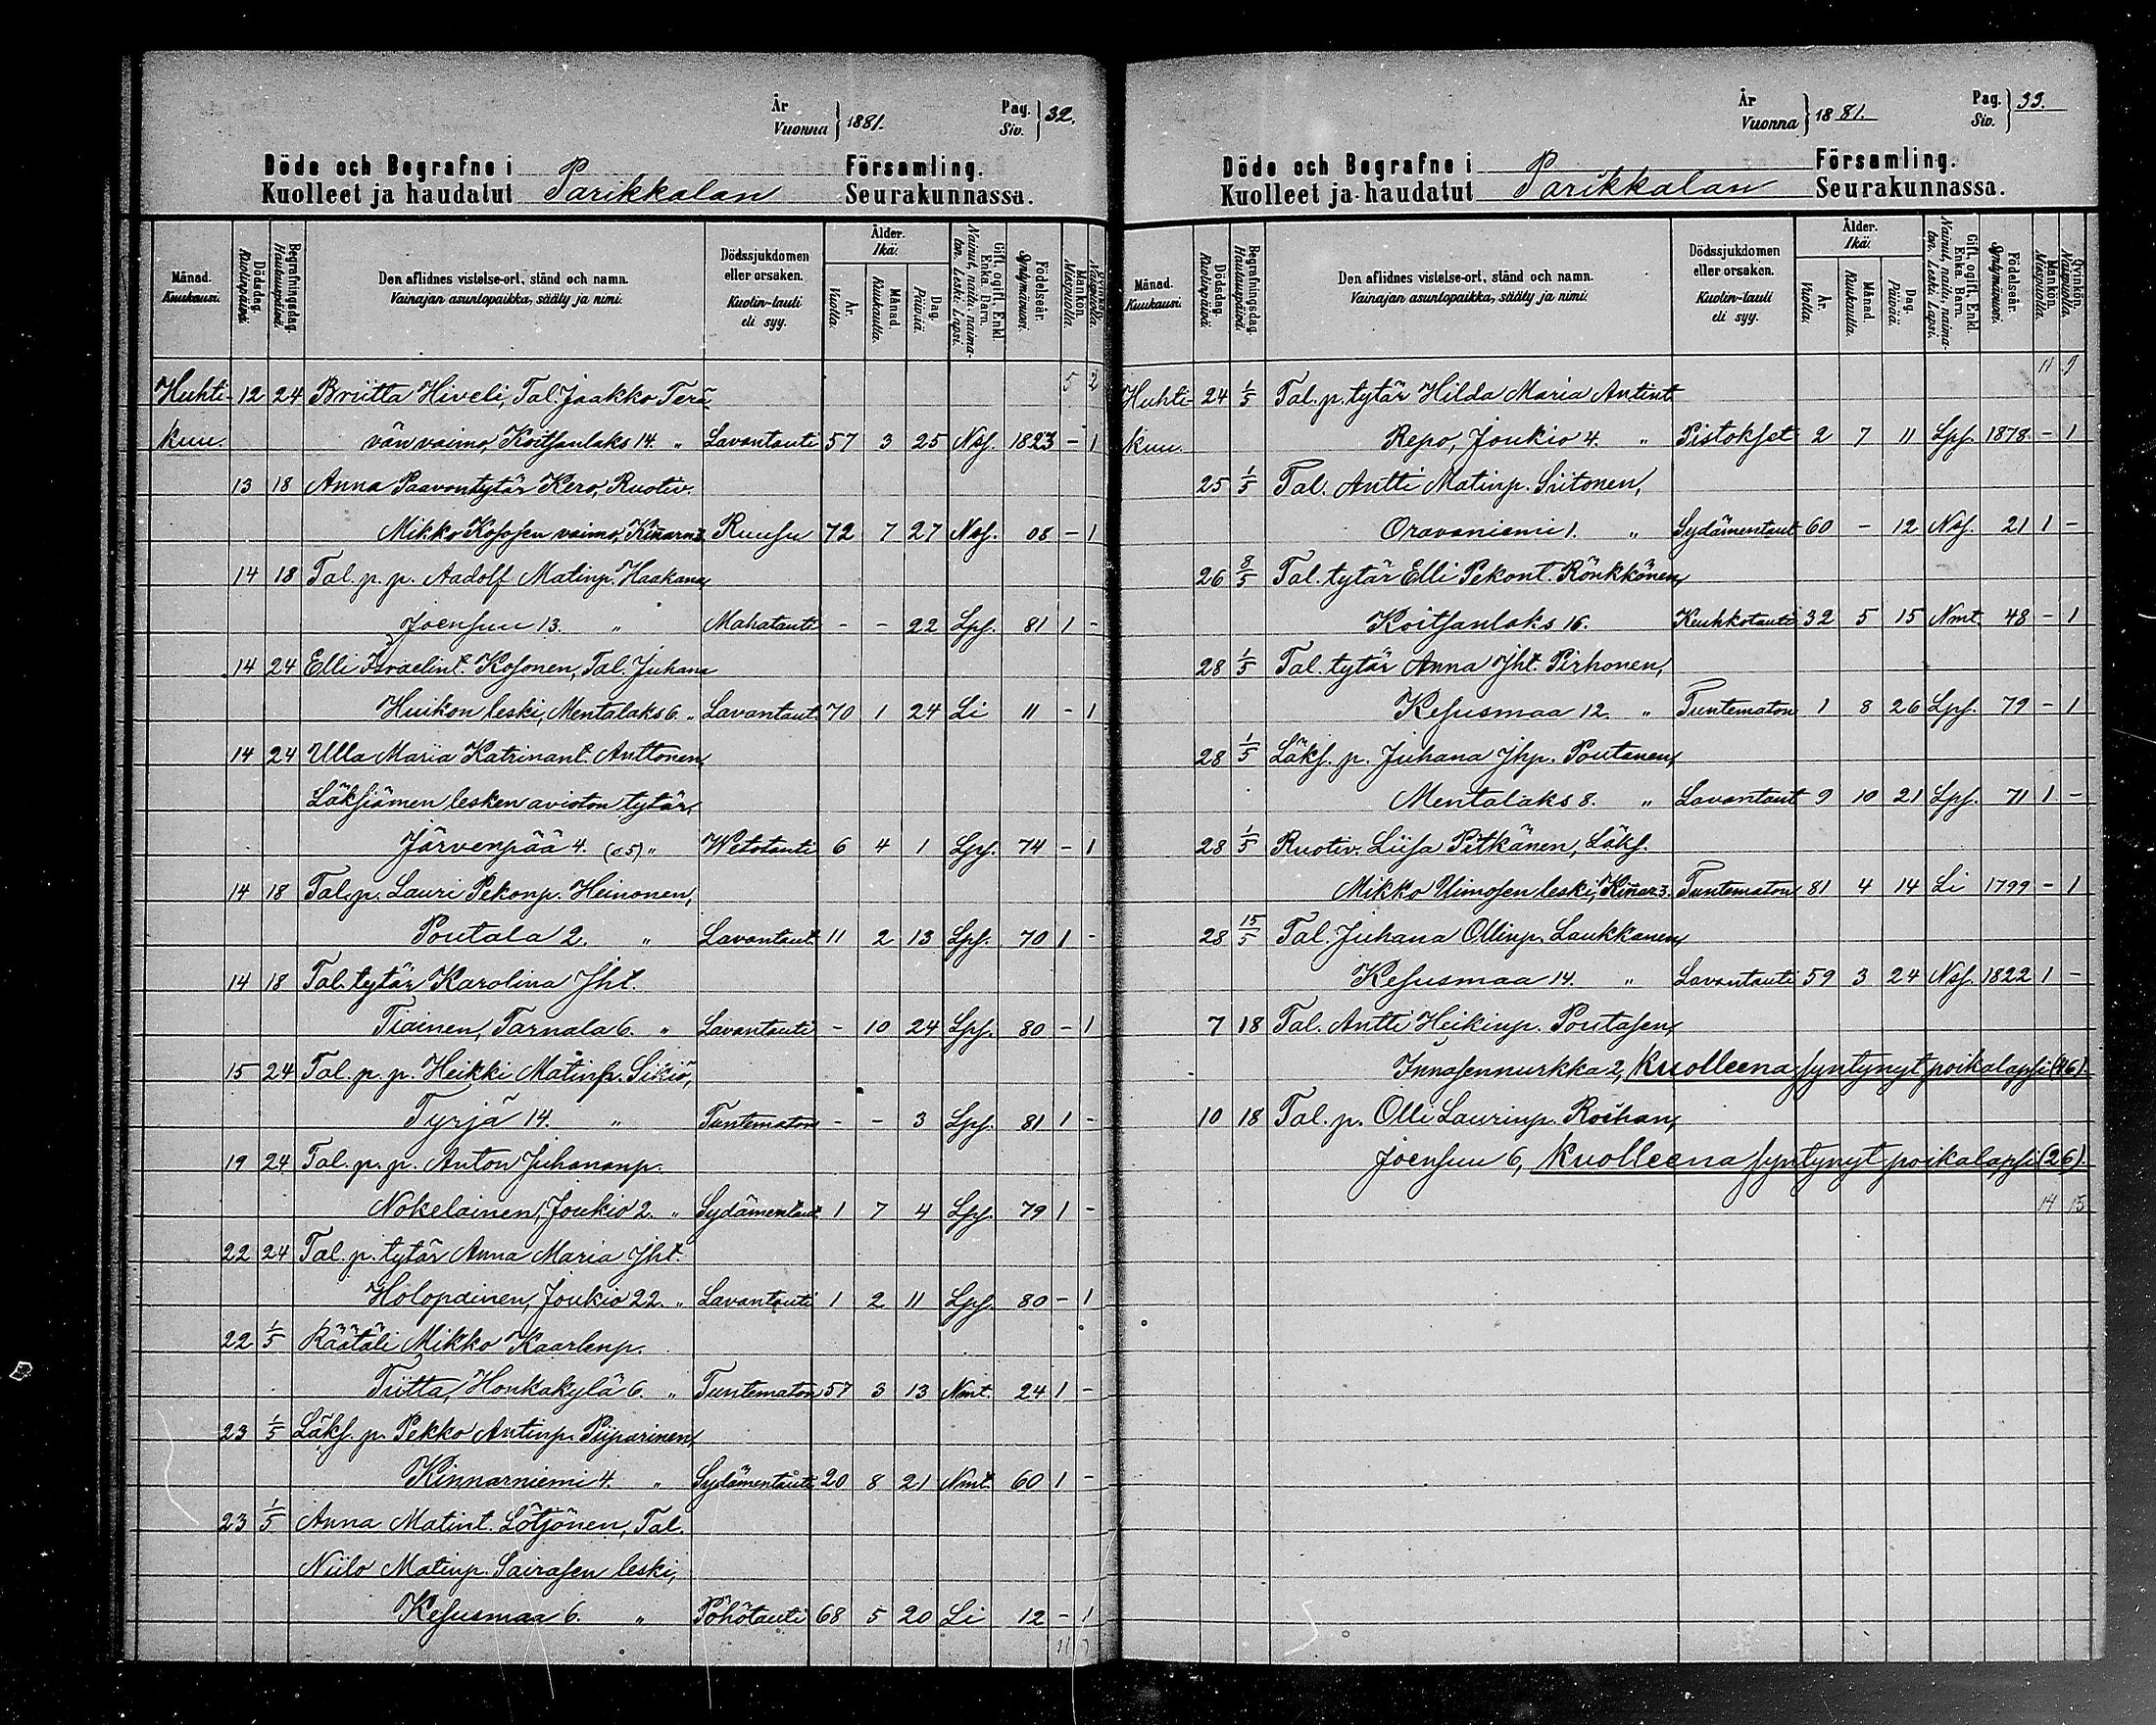 År
Vuonna } 1881.
Pag.
Siv. } 32.
Döde och Begrafne i Församling.
Kuolleet ja haudatut Parikkalan Seurakunnassa.
Månad. Kuukausi.
Dödsdag. Kuolinpäivä.
Begrafningsdag. Hautauspäivä.
Den aflidnes vistelse-ort, stånd och namn. Vainajan asuntopaikka, sääty ja nimi.
Dödssjukdomen eller orsaken. Kuolin-tauti eli syy.
Ålder. Ikä.
År. Vuotta.
Månad. Kuukautta.
Dag. Päiviä.
Gift, ogift, Enkl. Enka. Barn. Nainut, naitu, naima-ton. Leski. Lapsi.
Födelseår. Syntymävuosi.
Mankön. Miespuolia.
Qvinkön. Naispuolia.
5 2
Huhti- 12 24 Briitta Hiveli, Tal. Jaakko Terä-
kuu. vän vaimo, Koitsanlaks 14. " Lavantauti 57 3 25 Ns. 1823 - 1
13 18 Anna Paavontytär Kero, Ruotiv.
Mikko Kososen vaimo, Kinnarn 3 Ruusu 72 7 27 Ns. 08 - 1
14 18 Tal. p. p. Aadolf Matinp. Haakana,
Joensuu 13. " Mahatauti - - 22 Lps. 81 1 -
14 24 Elli Israelint. Kosonen, Tal. Juhana
Huikon leski, Mentalaks 6. " Lavantaut. 70 1 24 Li 11 - 1
14 24 Ulla Maria Katrinant. Anttonen,
Läksiämen lesken avioton tytär,
Järvenpää 4. (c 5) " Wetotauti 6 4 1 Lps. 74 - 1
14 18 Tal. p. Lauri Pekonp. Heinonen,
Poutala 2. " Lavantaut. 11 2 13 Lps. 70 1 -
14 18 Tal. tytär Karolina Jht.
Tiainen, Tarnala 6. " Lavantauti - 10 24 Lps. 80 - 1
15 24 Tal. p. p. Heikki Matinp. Sikiö,
Tyrjä 14. " Tuntematon - - 3 Lps. 81 1 -
19 24 Tal. p. p. Anton Juhananp.
Nokelainen, Joukio 2. " Sydämentaut. 1 7 4 Lps. 79 1 -
22 24 Tal. p. tytär Anna Maria Jht.
Holopainen, Joukio 22. " Lavantauti 1 2 11 Lps. 80 - 1
22 1/5 Räätäli Mikko Kaarlenp.
Tiitta, Honkakylä 6. " Tuntematon 57 3 13 Nmt. 24 1 -
23 1/5 Läks. p. Pekko Antinp. Piiparinen,
Kinnarniemi 4. " Sydämentauti 20 8 21 Nmt. 60 1 -
23 1/5 Anna Matint. Lötjönen, Tal.
Niilo Matinp. Sairasen leski,
Kesusmaa 6. " Pöhötauti 68 5 20 Li 12 - 1
År
Vuonna } 1881.
Pag.
Siv. } 33.
Döde och Begrafne i Församling.
Kuolleet ja haudatut Parikkalan Seurakunnassa.
Månad. Kuukausi.
Dödsdag. Kuolinpäivä.
Begrafningsdag. Hautauspäivä.
Den aflidnes vistelse-ort, stånd och namn. Vainajan asuntopaikka, sääty ja nimi.
Dödssjukdomen eller orsaken. Kuolin-tauti eli syy.
Ålder. Ikä.
År. Vuotta.
Månad. Kuukautta.
Dag. Päiviä.
Gift, ogift, Enkl. Enka. Barn. Nainut, naitu, naima-ton. Leski. Lapsi.
Födelseår. Syntymävuosi.
Mankön. Miespuolia.
Qvinkön. Naispuolia.
11 9
Huhti- 24 1/5 Tal. p. tytär Hilda Maria Antint.
kuu. Repo, Joukio 4. " Pistokset 2 7 11 Lps. 1878 - 1
25 1/5 Tal. Antti Matinp. Siitonen,
Oravaniemi 1. " Sydämentaut 60 - 12 Ns. 21 1 -
26 8/5 Tal. tytär Elli Pekont. Rönkkönen,
Koitsanlaks 16. Keuhkotauti 32 5 15 Nmt. 48 - 1
28 1/5 Tal. tytär Anna Jht. Pirhonen,
Kesusmaa 12. " Tuntematon 1 8 26 Lps. 79 - 1
28 1/5 Läks. p. Juhana Jhp. Poutanen,
Mentalaks 8. " Lavantaut 9 10 21 Lps. 71 1 -
28 1/5 Ruotiv. Liisa Pitkänen, Läks.
Mikko Uimosen leski, Kinnar 3. Tuntematon 81 4 14 Li 1799 - 1
28 15/5 Tal. Juhana Ollinp. Laukkanen,
Kesusmaa 14. " Lavantauti 59 3 24 Ns. 1822 1 -
7 18 Tal. Antti Heikinp. Poutasen,
Innasennurkka 2, Kuolleena syntynyt poikalapsi (46)
10 18 Tal. p. Olli Laurinp. Roihan,
Joensuu 6, Kuolleena syntynyt poikalapsi (26).
14 15